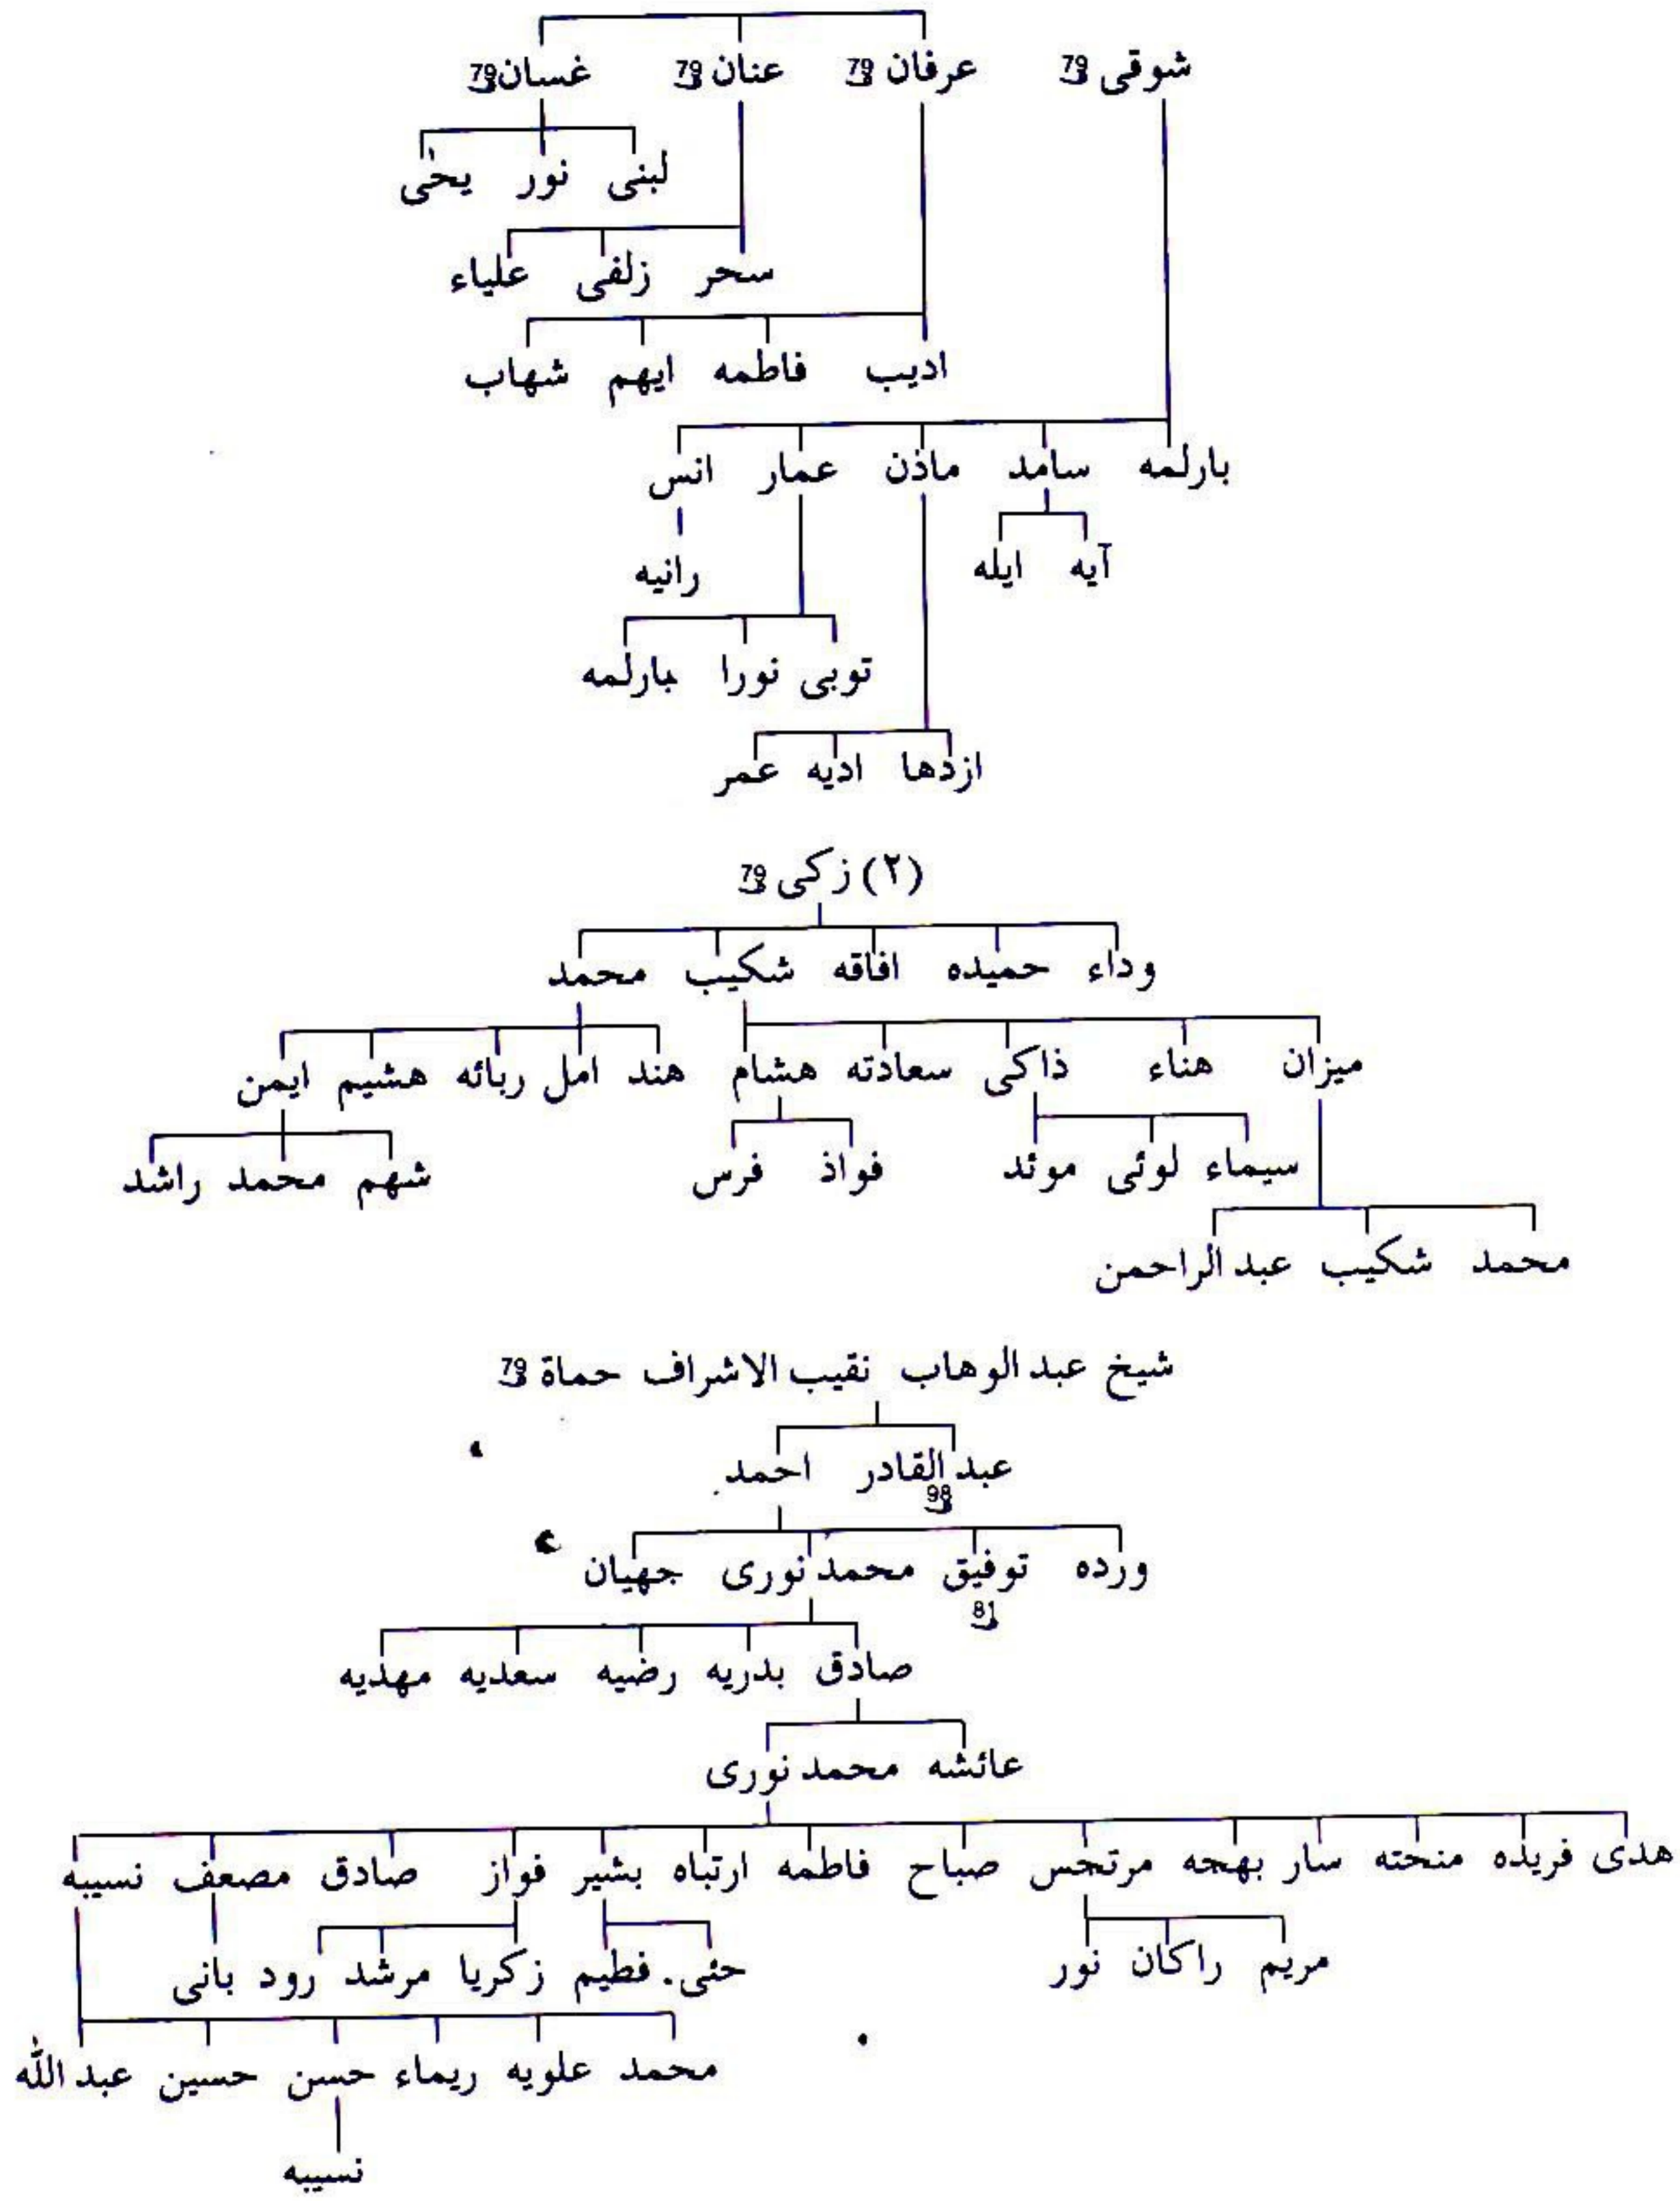 شوقی 79 عرفان 79 عنان 79 غسان 79
لبنی نور یحٰی
سحر زلفی علیاء
ادیب فاطمه ایهم شهاب
بارلمه سامد ماذن عمار انس
آیه ایله
رانیه
توبی نورا بارلمه
ازدها ادیه عمر
(۲) زکی 79
وداء حمیده افاقه شکیب محمد
میزان هناء ذاکی سعادته هشام هند امل ربائه هشیم ایمن
سیماء لوئی موئد فواذ فرس شهم محمد راشد
محمد شکیب عبدالراحمن
شیخ عبدالوهاب نقیب الاشراف حماة 79
عبدالقادر احمد
98
ورده توفیق محمد نوری جهیان
81
صادق بدریه رضیه سعدیه مهدیه
عائشه محمد نوری
هدی فریده منحته سار بهجه مرتجس صباح فاطمه ارتباه بشیر فواز صادق مصعف نسیبه
مریم راکان نور حئی. فطیم زکریا مرشد رود بانی
محمد علویه ریماء حسن حسین عبدالله
نسیبه